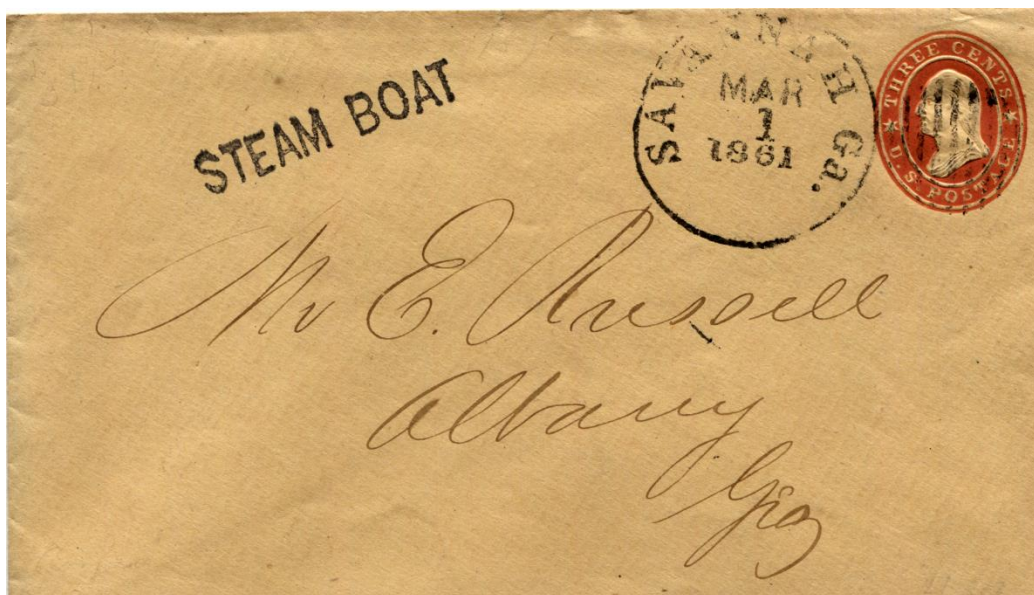 STEAM BOAT
SAVANNAH Ga.
MAR
1
1861
THREE CENTS
U.S. POSTAGE
Mr E. Russell
Albany
Geo